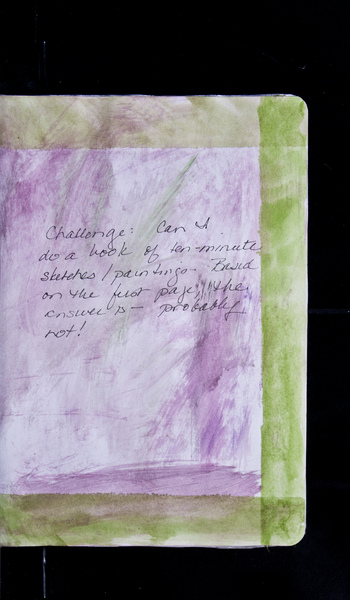 Challenge: Can I
do a book of ten-minute
sketches/paintings. Based
on the first page, the
answer is - probably
not!